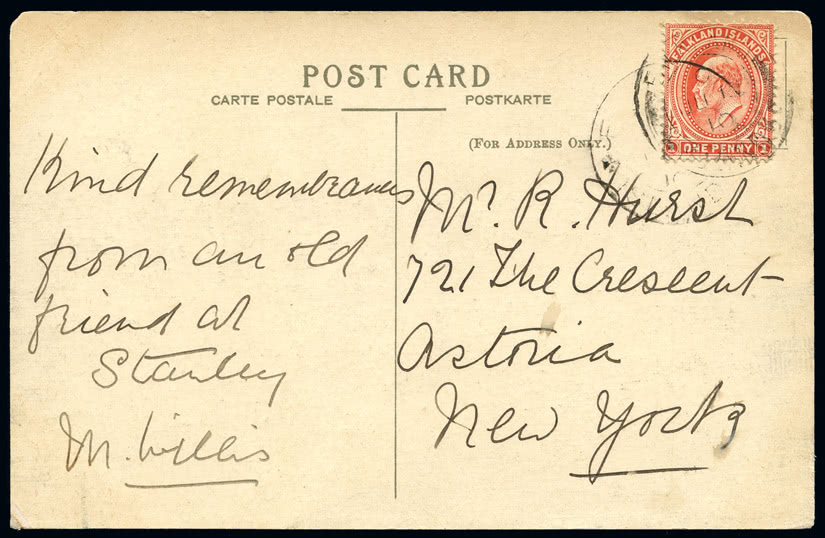 POST CARD
CARTE POSTALE POSTKARTE
(FOR ADDRESS ONLY.)
FALKLAND ISLANDS
1 ONE PENNY 1
Kind remembrances
from an old
friend at
Stanley
M. Willis
Mr. R. Hurst
721 The Crescent
Astoria
New York